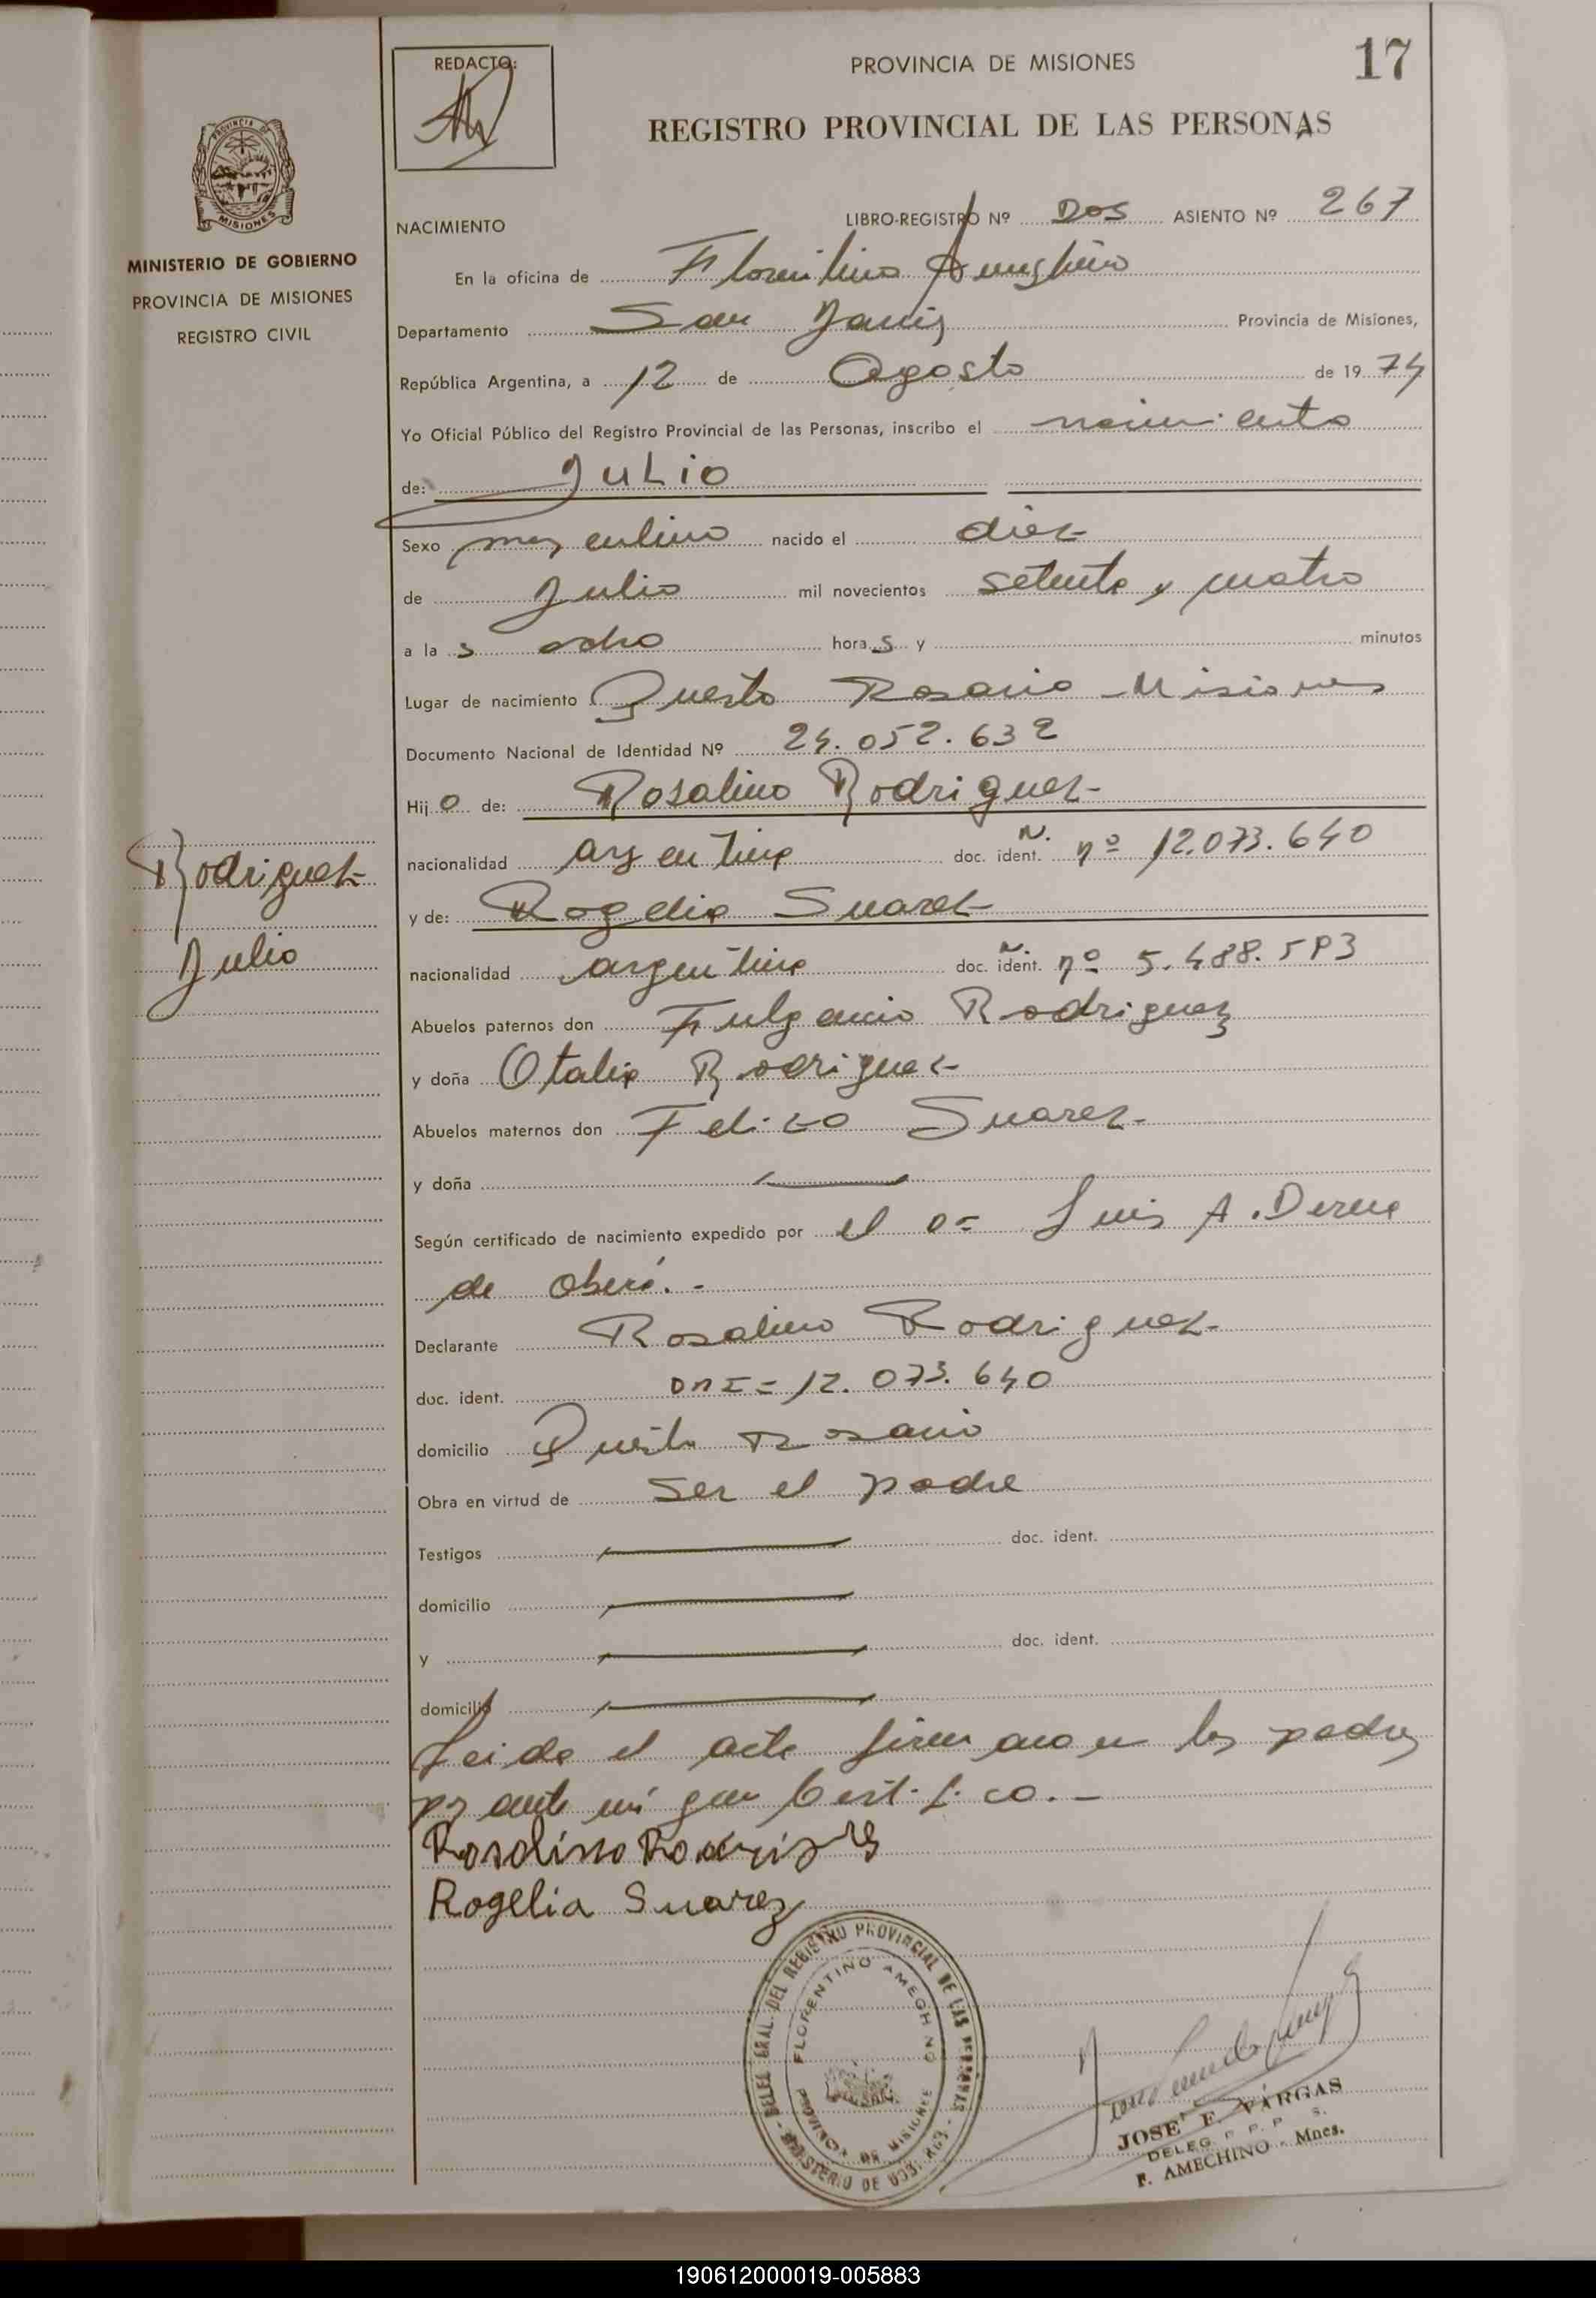 REDACTO:
PROVINCIA DE MISIONES
17
REGISTRO PROVINCIAL DE LAS PERSONAS
PROVINCIA DE
MISIONES
MINISTERIO DE GOBIERNO
PROVINCIA DE MISIONES
REGISTRO CIVIL
NACIMIENTO LIBRO-REGISTRO Nº DOS ASIENTO Nº 267
En la oficina de Florentino Ameghino
Departamento San Javier Provincia de Misiones,
República Argentina, a 12 de Agosto de 1974
Yo Oficial Público del Registro Provincial de las Personas, inscribo el nacimiento
de: JULIO
Sexo masculino nacido el diez
de Julio mil novecientos setenta y cuatro
a las ocho horas y minutos
Lugar de nacimiento Puesto Rosario - Misiones
Documento Nacional de Identidad Nº 24.052.632
Hijo de: Rosalino Rodriguez
nacionalidad argentina doc. N. ident. nº 12.073.640
y de: Rogelia Suarez
nacionalidad argentina doc. N. ident. nº 5.488.583
Abuelos paternos don Fulgencio Rodriguez
y doña Otalia Rodriguez
Abuelos maternos don Suarez
y doña
Según certificado de nacimiento expedido por el Dr Luis A.
de Oberá.-
Declarante Rosalino Rodriguez
doc. ident. DNI= 12.073.640
domicilio Puesto Rosario
Obra en virtud de ser el padre
Testigos doc. ident.
domicilio
y doc. ident.
domicilio
Leida el acta firman los padres
por ante mí que Certifico.-
Rodriguez
Julio
Rosalino Rodriguez
Rogelia Suarez
DELEG. GRAL. DEL REGISTRO PROVINCIAL DE LAS PERSONAS
FLORENTINO AMEGHINO
PROVINCIA DE MISIONES
MINISTERIO DE GOB.
JOSE F. VARGAS
DELEG. R. P. P. S.
F. AMECHINO - Mnes.
190612000019-005883